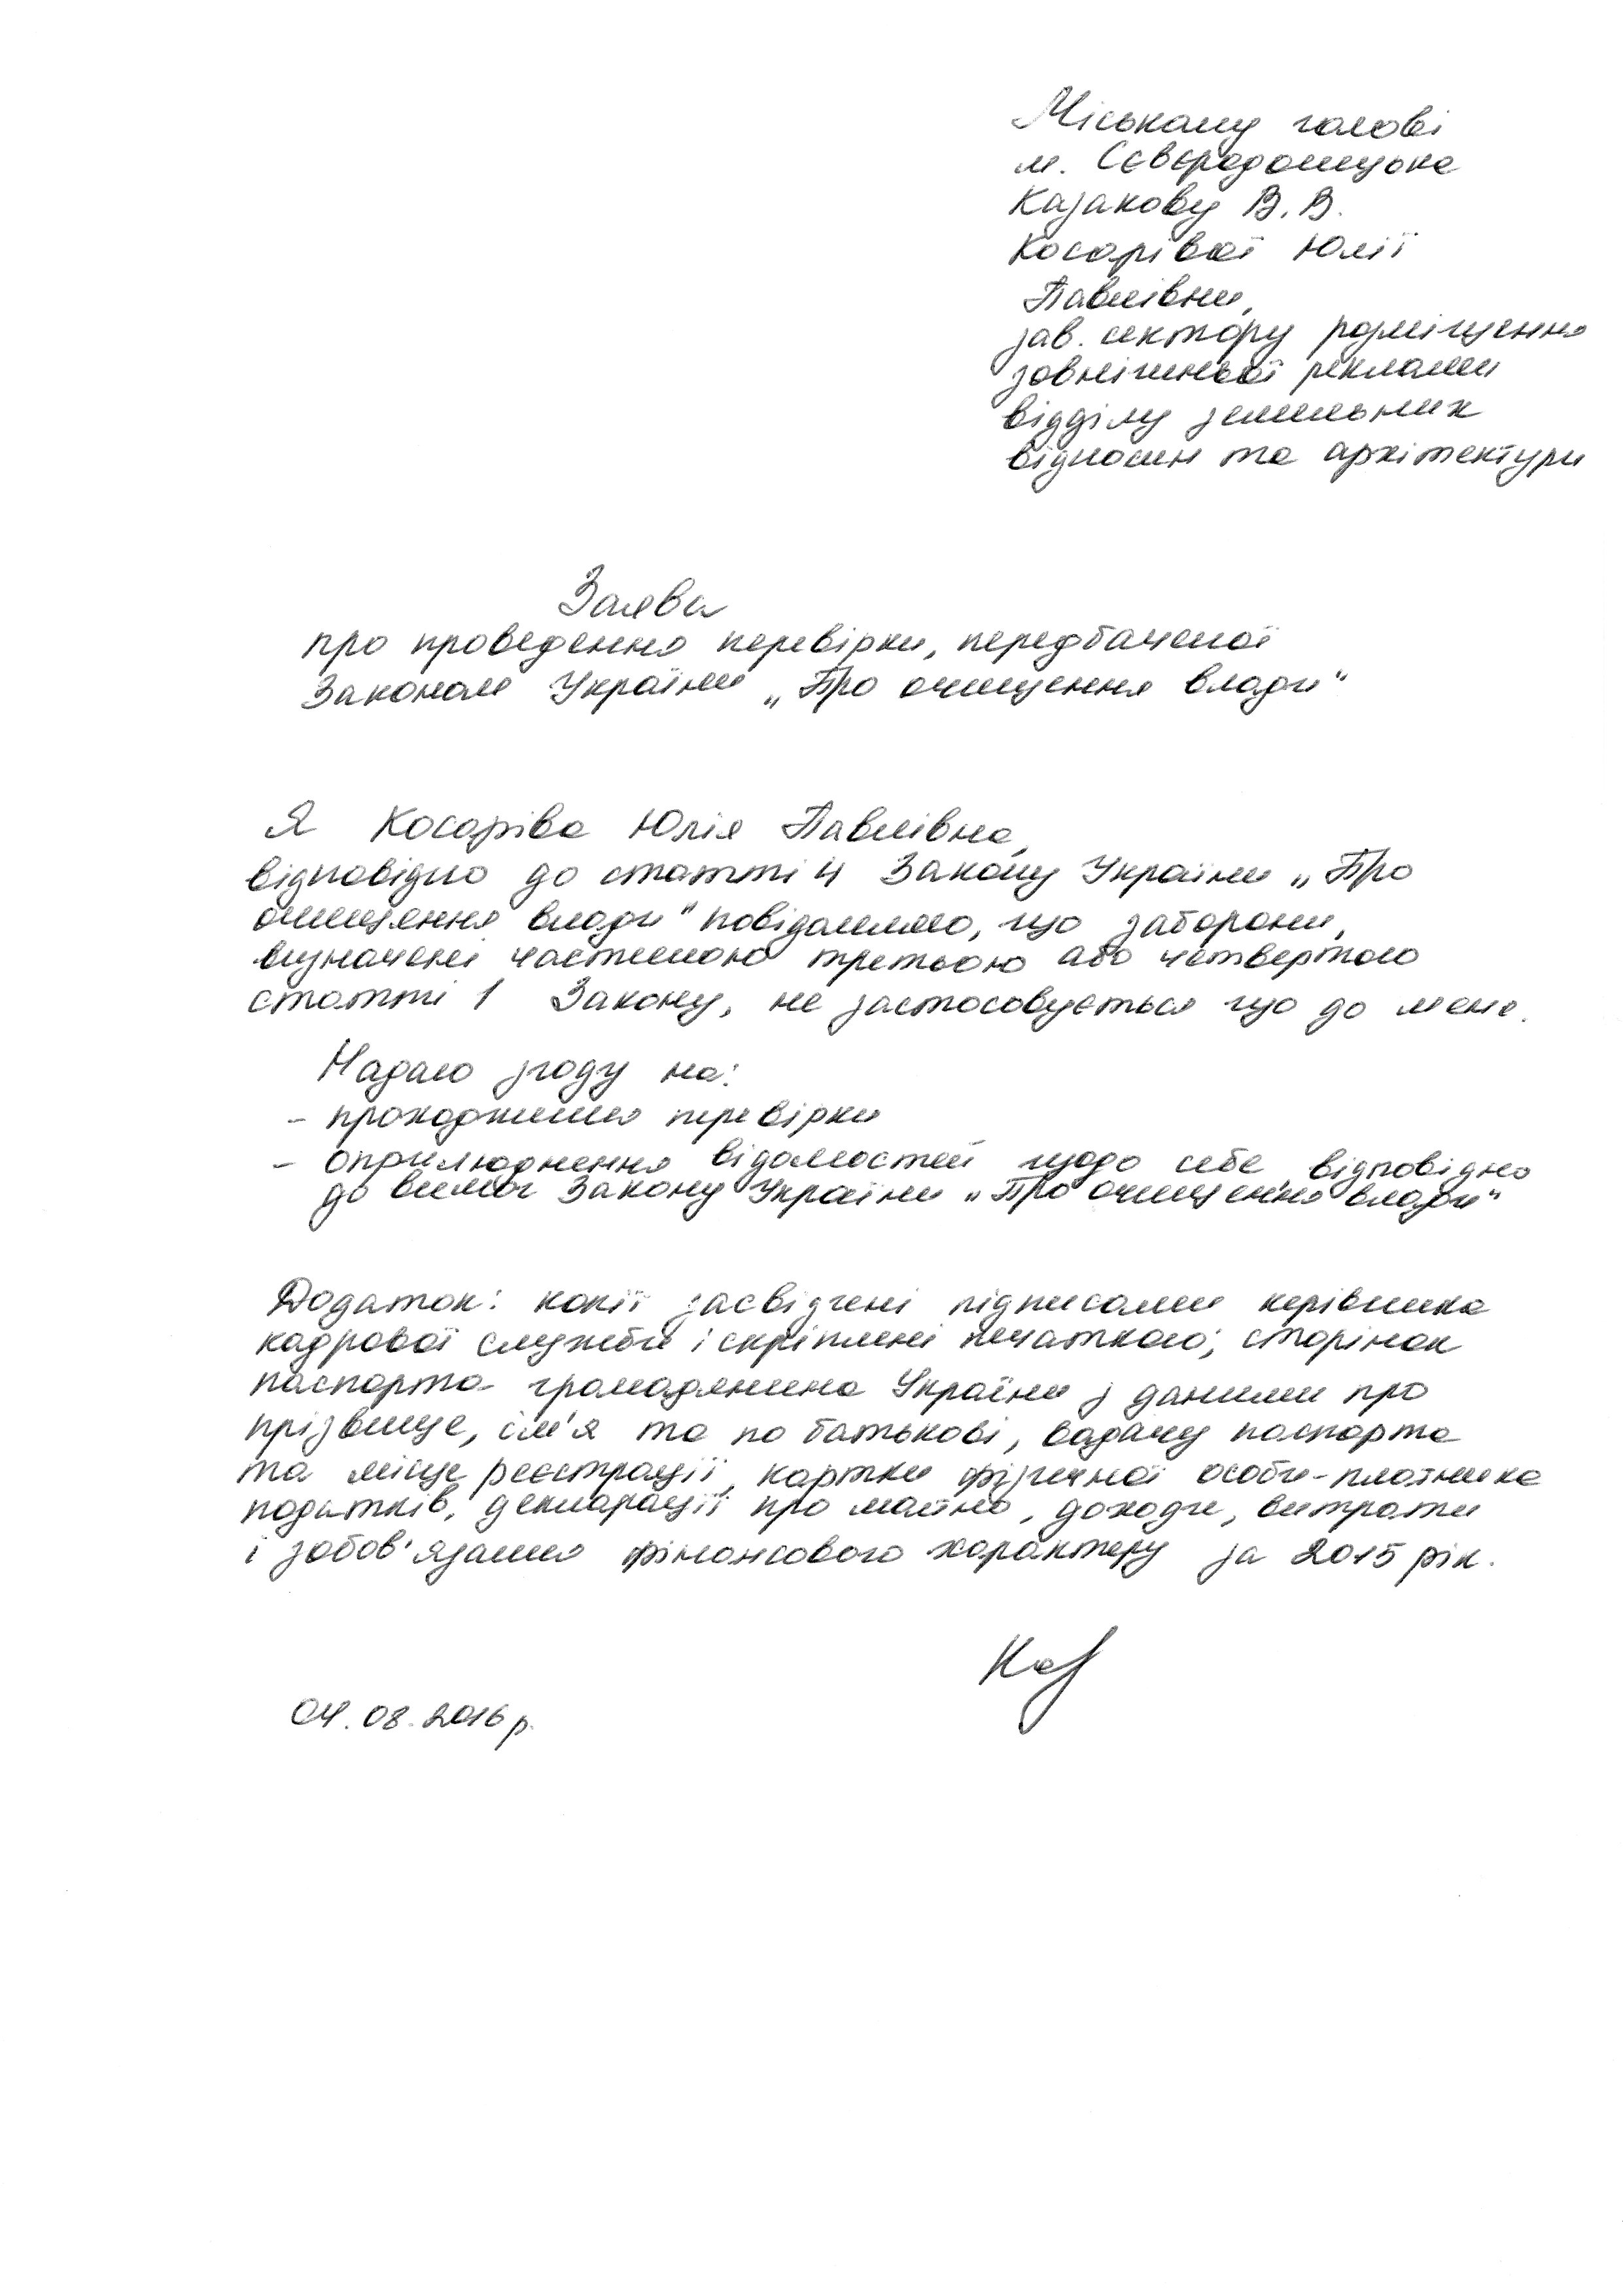 Міському голові
м. Сєвєродонецька
Казакову В.В.
Косарівої Юлії
Павлівни,
зав. сектору розміщення
зовнішньої реклами
відділу земельних
відносин та архітектури
Заява
про проведення перевірки, передбаченої
Законом України „Про очищення влади"
Я Косаріва Юлія Павлівна,
відповідно до статті 4 Закону України „Про
очищення влади" повідомляю, що заборони,
визначені частиною третьою або четвертою
статті 1 Закону, не застосовується що до мене.
Надаю згоду на:
- проходження перевірки
- оприлюднення відомостей щодо себе відповідно
до вимог Закону України „Про очищення влади"
Додаток: копії засвідчені підписами керівника
кадрової служби і скріплені печаткою; сторінок
паспорта громадянина України з даними про
прізвище, ім'я та по батькові, видачу паспорта
та місце реєстрації, картки фізичної особи-платника
податків, декларації про майно, доходи, витрати
і зобов'язання фінансового характеру за 2015 рік.
04.08.2016 р.